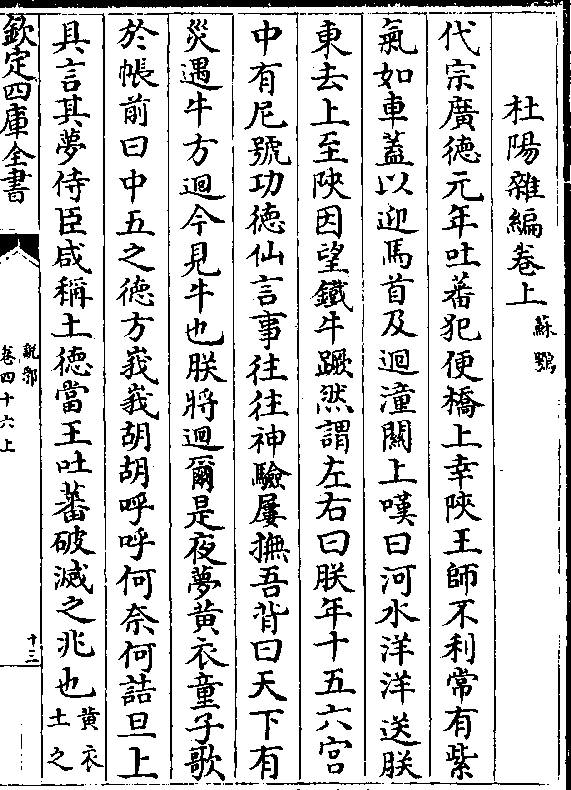 杜陽雜編卷上 蘇鶚
代宗廣德元年吐蕃犯便橋上幸陜王師不利常有紫
氣如車蓋以迎馬首及迴潼關上嘆曰河水洋洋送朕
東去上至陜因望鐵牛蹶然謂左右曰朕年十五六宫
中有尼號功德仙言事往往神驗屢撫吾背曰天下有
災遇牛方迴今見牛也朕將迴爾是夜夢黄衣童子歌
於帳前曰中五之德方峩峩胡胡呼呼何奈何詰旦上
具言其夢侍臣咸稱土德當王吐蕃破滅之兆也黄衣
土之
欽定四庫全書
說郛
卷四十六上
十三